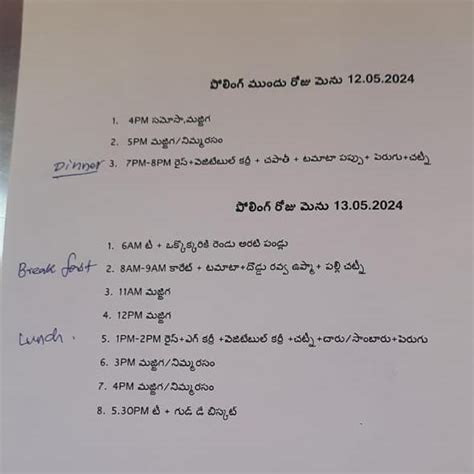 పోలింగ్ ముందు రోజు మెను 12.05.2024
1. 4PM సమోసా,మజ్జిగ
2. 5PM మజ్జిగ/నిమ్మరసం
Dinner 3. 7PM-8PM రైస్+వెజిటేబుల్ కర్రీ + చపాతీ + టమాటా పప్పు+ పెరుగు+చట్నీ
పోలింగ్ రోజు మెను 13.05.2024
1. 6AM టీ + ఒక్కొక్కరికి రెండు అరటి పండ్లు
Break fast 2. 8AM-9AM కారేట్ + టమాటా+దొడ్డు రవ్వ ఉప్మా+ పల్లి చట్నీ
3. 11AM మజ్జిగ
4. 12PM మజ్జిగ
Lunch. 5. 1PM-2PM రైస్+ఎగ్ కర్రీ +వెజిటేబుల్ కర్రీ +చట్నీ+చారు/సాంబారు+పెరుగు
6. 3PM మజ్జిగ/నిమ్మరసం
7. 4PM మజ్జిగ/నిమ్మరసం
8. 5.30PM టీ + గుడ్ డే బిస్కట్